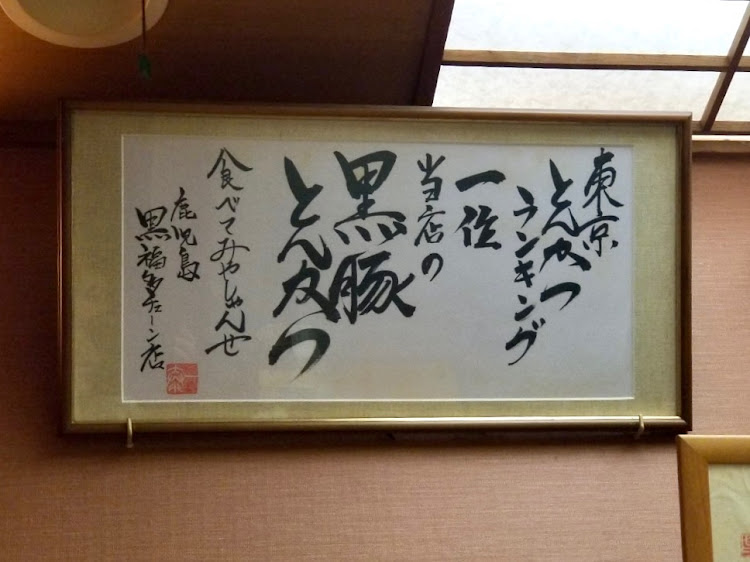 東京
とんかつ
ランキング
一位
当店の
黒豚
とんかつ
食べてみやしゃんせ
鹿児島
黒福多チェーン店